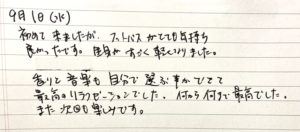 9月1日(水)
初めて来ましたが、フットバスがとても気持ち
良かったです。全身がすごく軽くなりました。
香りと音楽も自分で選ぶ事ができて
最高のリラクゼーションでした。何から何まで最高でした。
また次回も楽しみです。